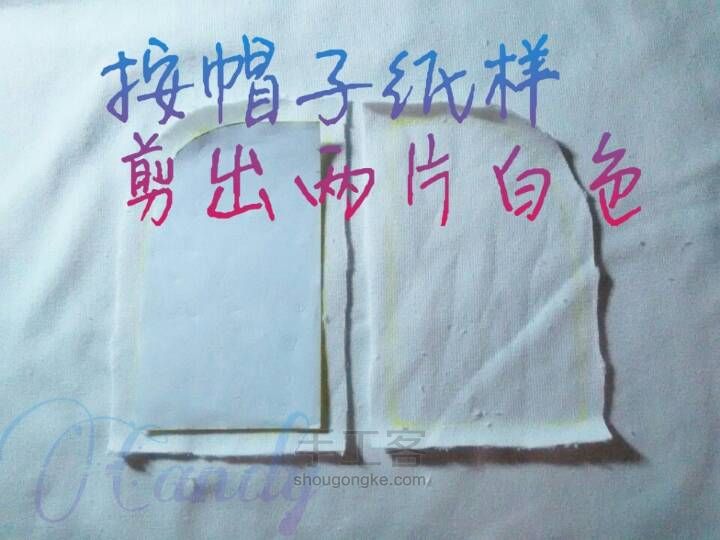 按帽子纸样
剪出两片白色
Candy
手工客
shougongke.com